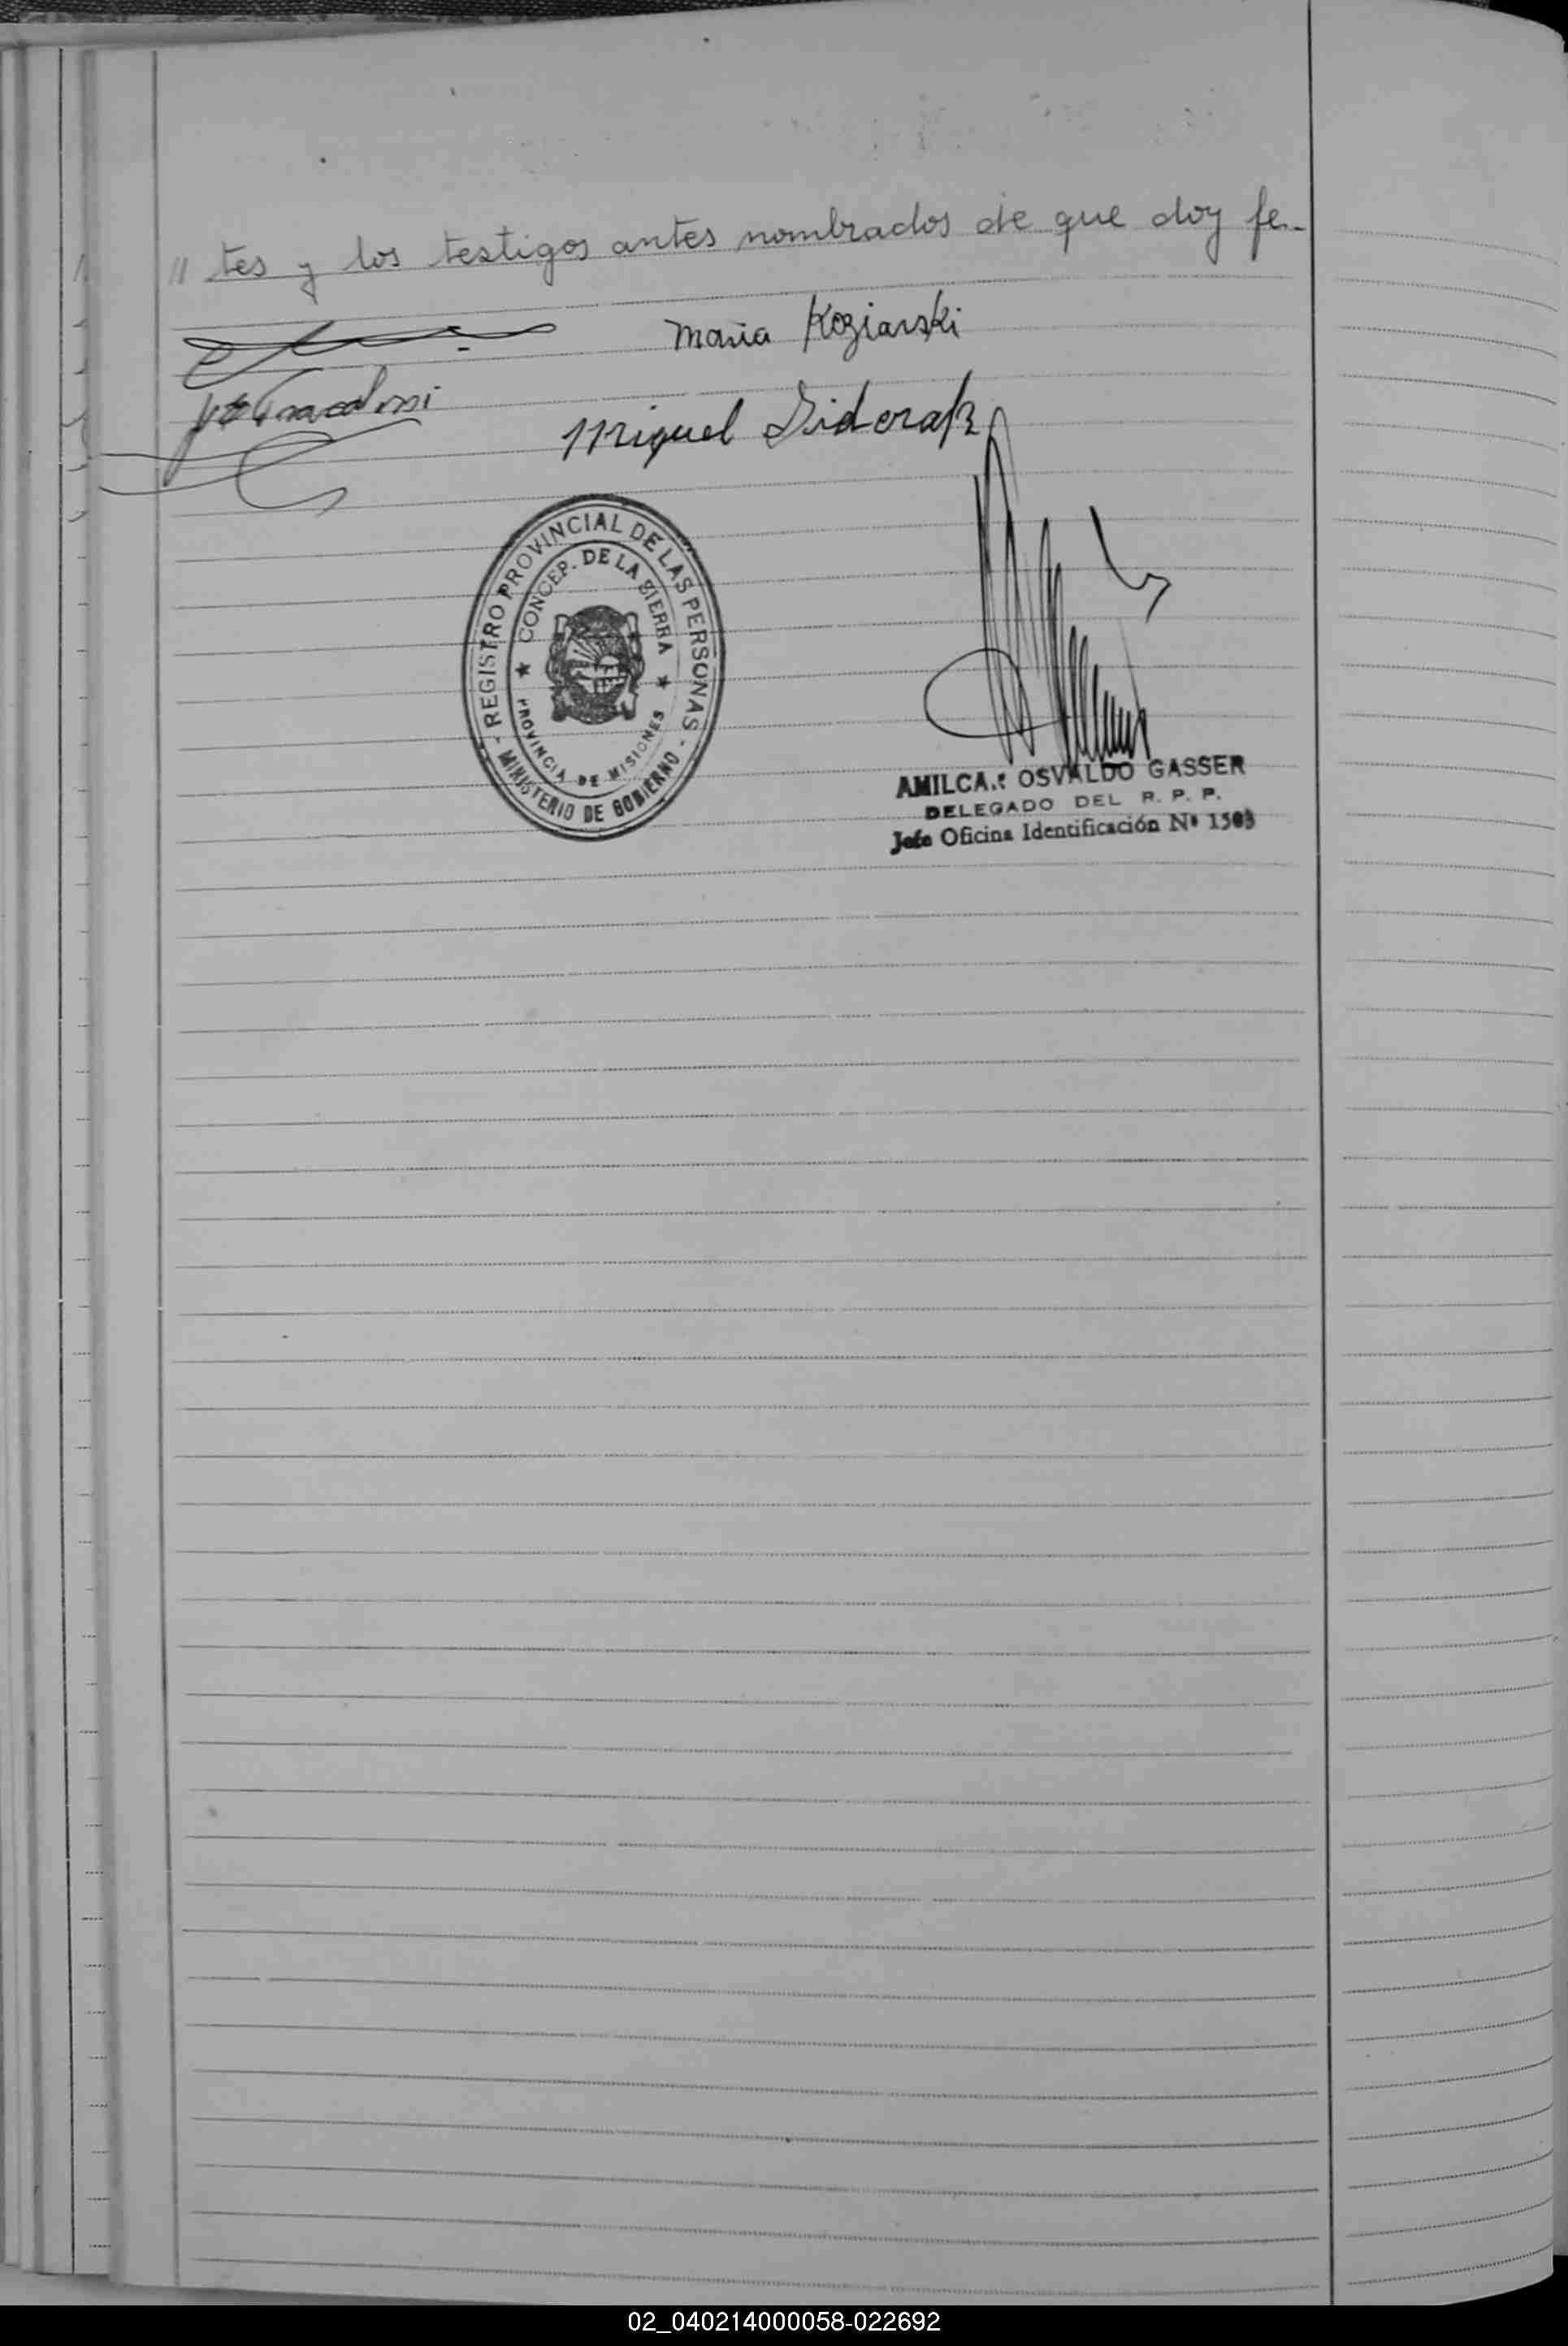 " tes y los testigos antes nombrados de que doy fe.-
Maria Koziarski
Miguel Siderak
- REGISTRO PROVINCIAL DE LAS PERSONAS -
MINISTERIO DE GOBIERNO
★ CONCEP. DE LA SIERRA ★
PROVINCIA DE MISIONES
AMILCAR OSVALDO GASSER
DELEGADO DEL R. P. P.
Jefe Oficina Identificación Nº 1503
02_040214000058-022692